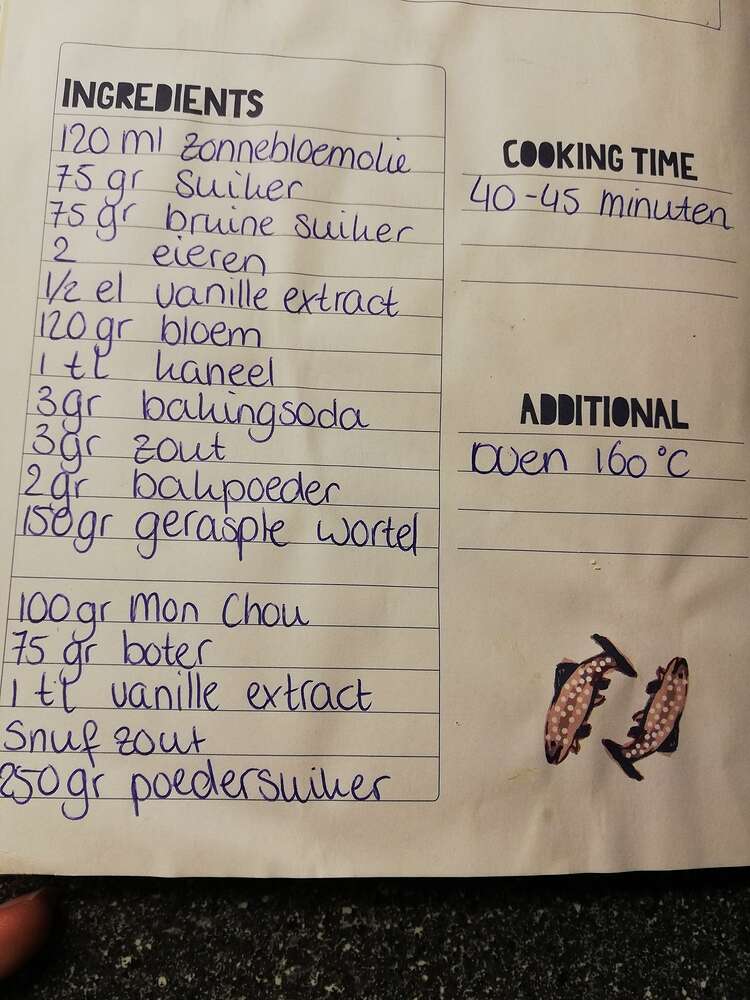 INGREDIENTS
120 ml zonnebloemolie
75 gr suiker
75 gr bruine suiker
2 eieren
1/2 el vanille extract
120 gr bloem
1 tl kaneel
3 gr bakingsoda
3 gr zout
2 gr bakpoeder
150 gr geraspte wortel
100 gr Mon Chou
75 gr boter
1 tl vanille extract
Snuf zout
250 gr poedersuiker
COOKING TIME
40-45 minuten
ADDITIONAL
Oven 160°C